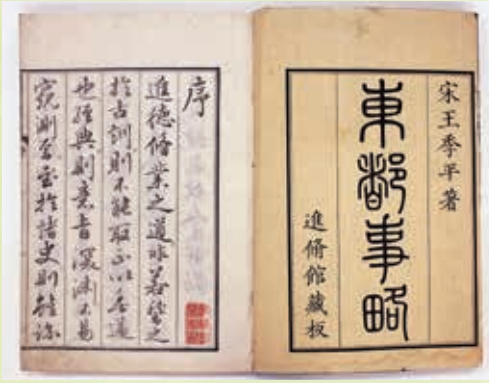 宋王季平著
東都事略
進脩館藏板
序
進德脩業之道非若堂之
於古訓則不能取正以合道
也經典則意旨深淵不易
窺測至於諸史則雖